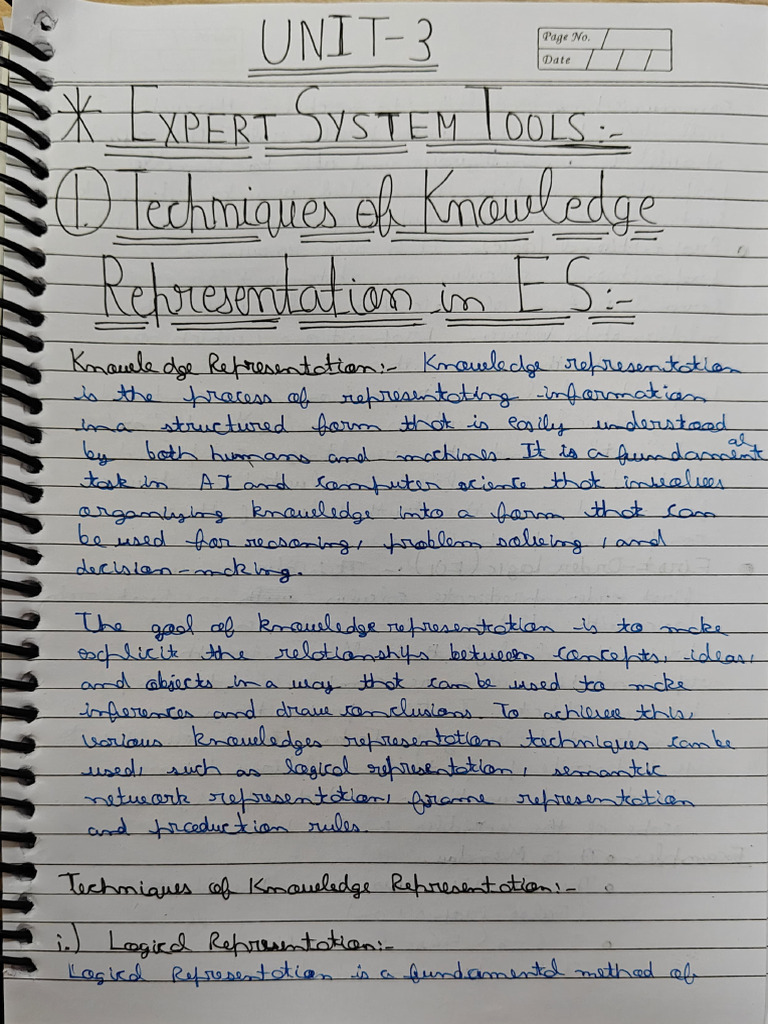 UNIT-3
Page No. /
Date / / /
* EXPERT SYSTEM TOOLS:-
1. Techniques of Knowledge
Representation in ES:-
Knowledge Representation:- Knowledge representation
is the process of representating information
in a structured form that is easily understood
by both humans and machines. It is a fundamental
task in AI and computer science that involves
organizing knowledge into a form that can
be used for reasoning, problem solving, and
decision-making.
The goal of knowledge representation is to make
explicit the relationships between concepts, ideas,
and objects in a way that can be used to make
inferences and draw conclusions. To achieve this,
various knowledges representation techniques can be
used, such as logical representation, semantic
network representation, frame representation
and production rules.
Techniques of Knowledge Representation:-
i.) Logical Representation:-
Logical Representation is a fundamental method of